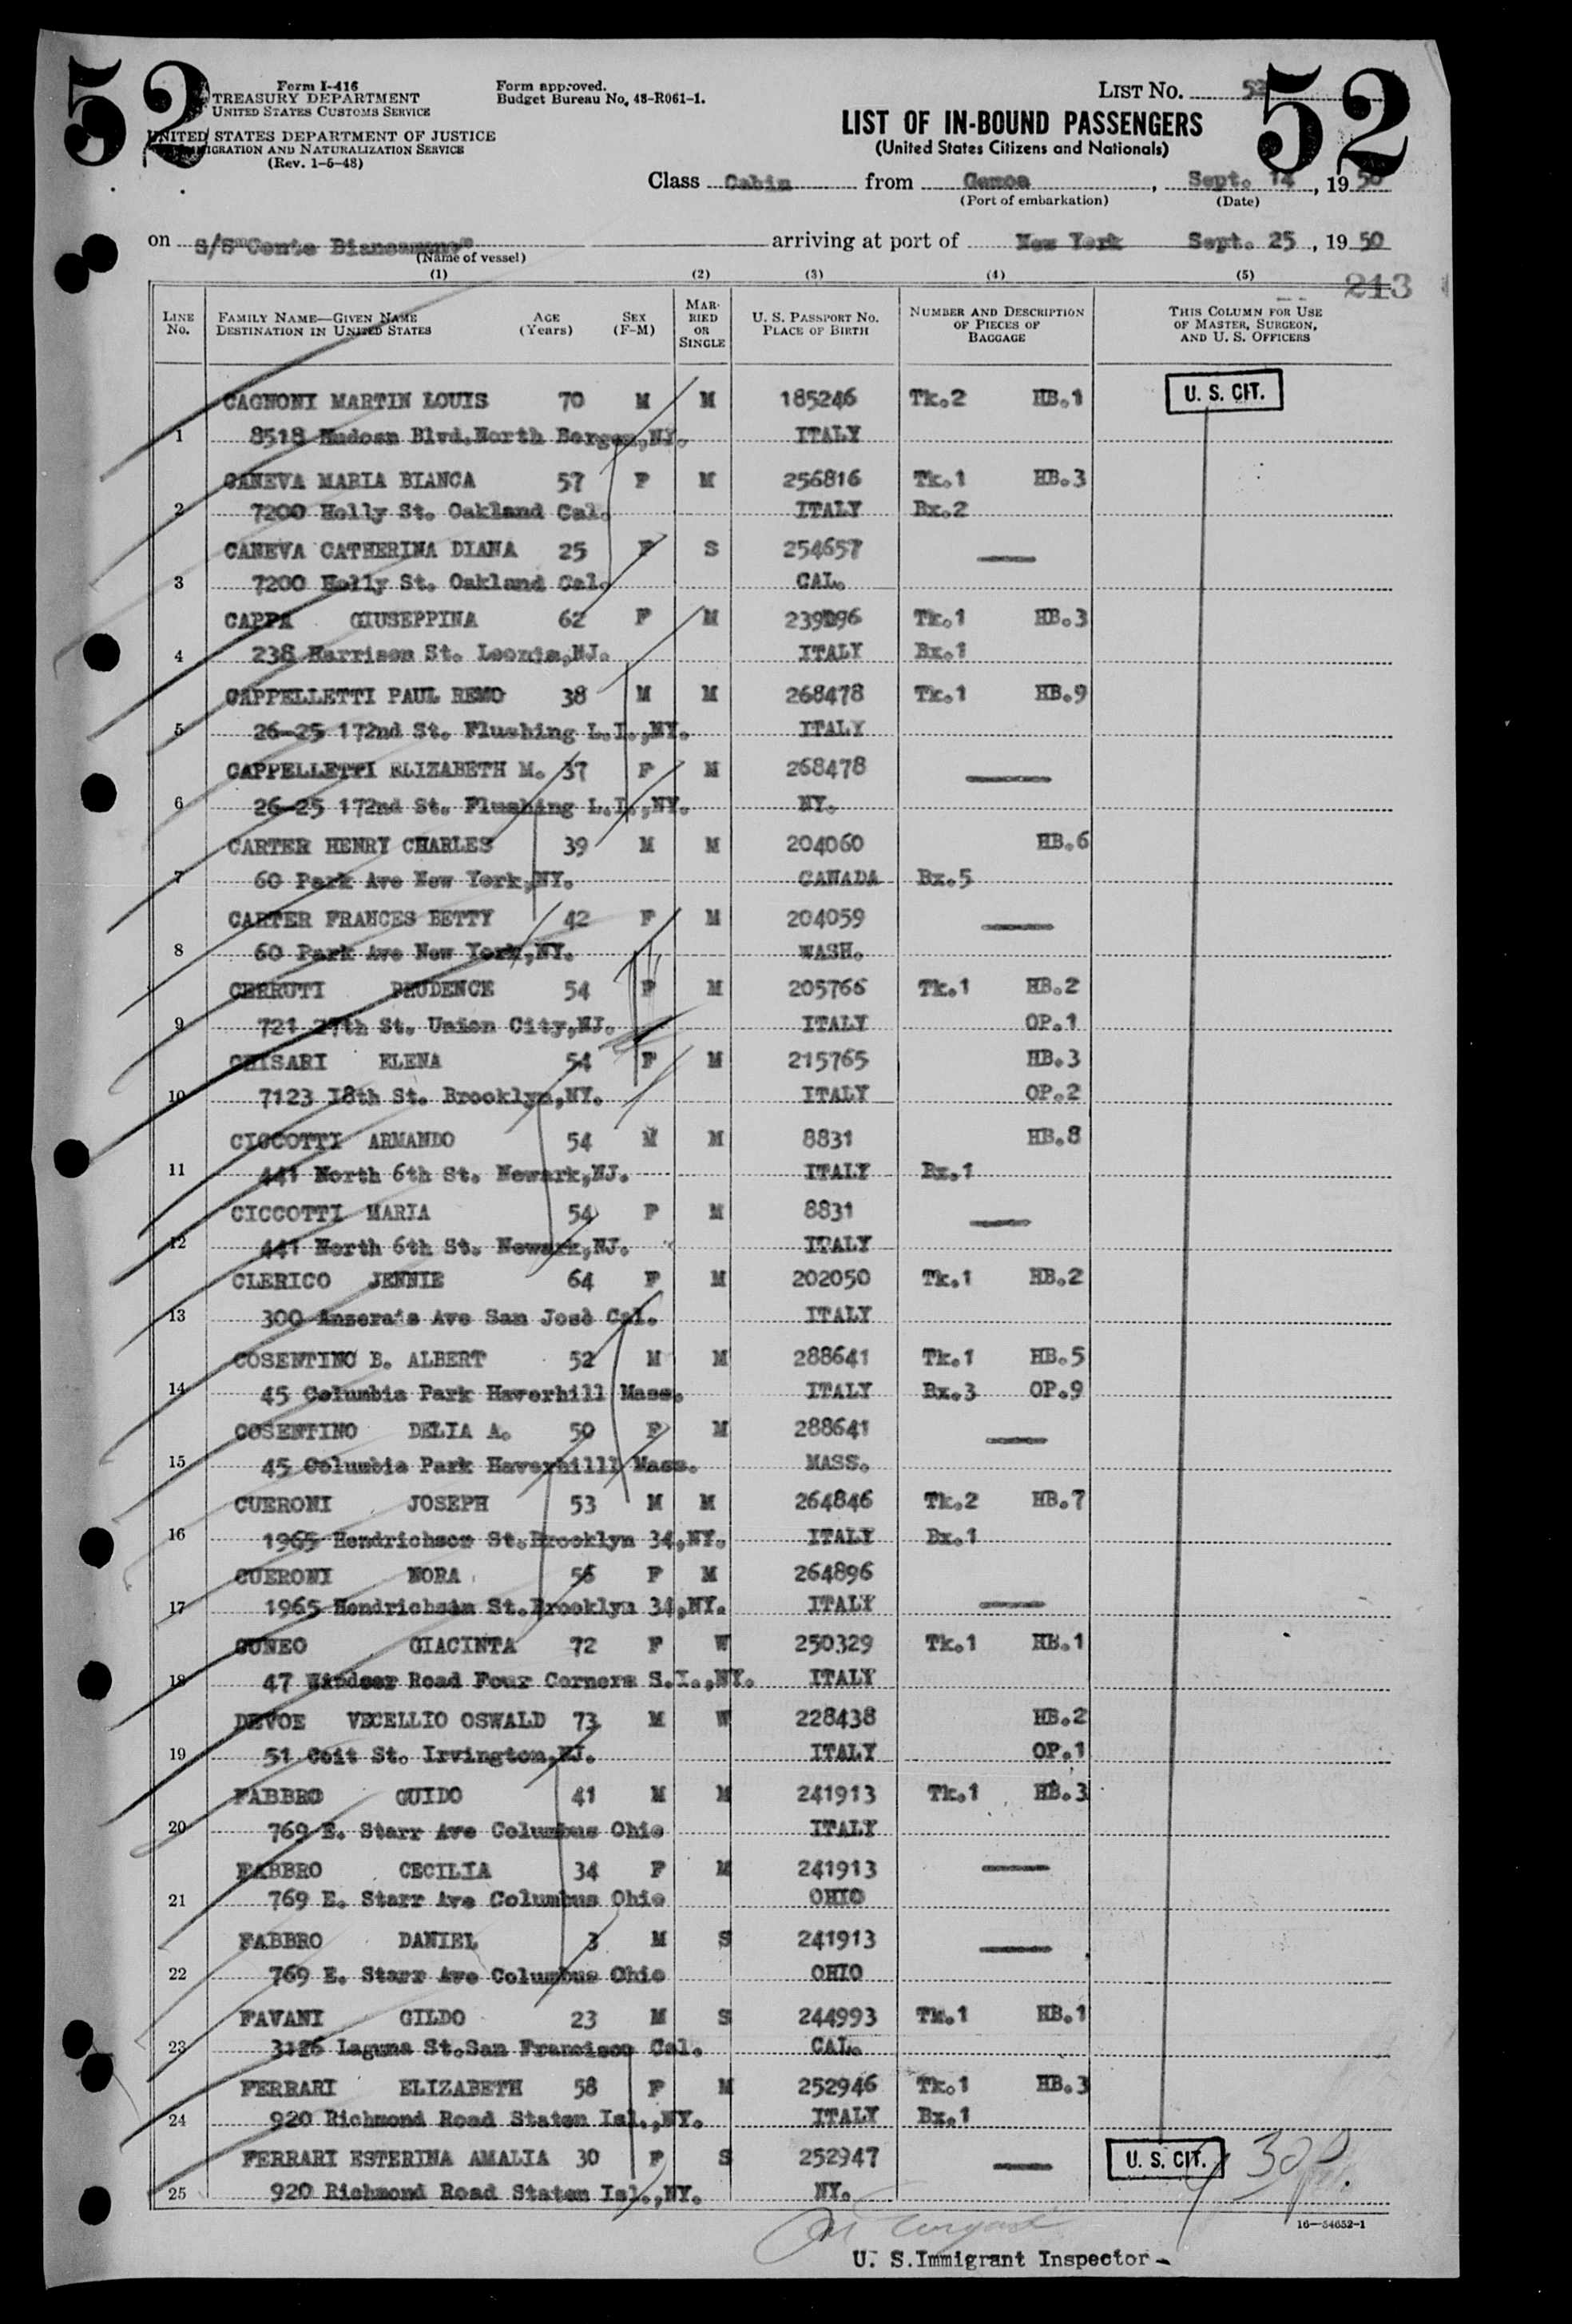 52
52
Form I-416
TREASURY DEPARTMENT
UNITED STATES CUSTOMS SERVICE
UNITED STATES DEPARTMENT OF JUSTICE
IMMIGRATION AND NATURALIZATION SERVICE
(Rev. 1-5-48)
Form approved.
Budget Bureau No. 48-R061-1.
LIST NO. 52
LIST OF IN-BOUND PASSENGERS
(United States Citizens and Nationals)
Class Cabin from Genoa, Sept. 14, 1950
(Port of embarkation) (Date)
on S/S "Conte Biancamano" arriving at port of New York Sept. 25, 1950
(Name of vessel)
(1) (2) (3) (4) (5)
213
LINE No. FAMILY NAME—GIVEN NAME DESTINATION IN UNITED STATES AGE (Years) SEX (F-M) MARRIED OR SINGLE U. S. PASSPORT NO. PLACE OF BIRTH NUMBER AND DESCRIPTION OF PIECES OF BAGGAGE THIS COLUMN FOR USE OF MASTER, SURGEON, AND U. S. OFFICERS
CAGNONI MARTIN LOUIS 70 M M 185246 Tk.2 HB.1 U. S. CIT.
1 8518 Hudosn Blvd.North Bergen,NY. ITALY
CANEVA MARIA BIANCA 57 F M 256816 Tk.1 HB.3
2 7200 Holly St. Oakland Cal. ITALY Bx.2
CANEVA CATHERINA DIANA 25 F S 254657
3 7200 Holly St. Oakland Cal. CAL.
CAPPA GIUSEPPINA 62 F M 239096 Tk.1 HB.3
4 238 Harrison St. Leonia,NJ. ITALY Bx.1
CAPPELLETTI PAUL REMO 38 M M 268478 Tk.1 HB.9
5 26-25 172nd St. Flushing L.I.,NY. ITALY
CAPPELLETTI ELIZABETH M. 37 F M 268478
6 26-25 172nd St. Flushing L.I.,NY. NY.
CARTER HENRY CHARLES 39 M M 204060 HB.6
7 60 Park Ave New York,NY. CANADA Bx.5
CARTER FRANCES BETTY 42 F M 204059
8 60 Park Ave New York,NY. WASH.
CERRUTI PRUDENCE 54 F M 205766 Tk.1 HB.2
9 721 27th St. Union City,NJ. ITALY OP.1
CHISARI ELENA 54 F M 215765 HB.3
10 7123 18th St. Brooklyn,NY. ITALY OP.2
CICCOTTI ARMANDO 54 M M 8831 HB.8
11 441 North 6th St. Newark,NJ. ITALY Bx.1
CICCOTTI MARIA 54 F M 8831
12 441 North 6th St. Newark,NJ. ITALY
CLERICO JENNIE 64 F M 202050 Tk.1 HB.2
13 300 Anserais Ave San Josè Cal. ITALY
COSENTINO B. ALBERT 52 M M 288641 Tk.1 HB.5
14 45 Columbia Park Haverhill Mass. ITALY Bx.3 OP.9
COSENTINO DELIA A. 50 F M 288641
15 45 Columbia Park Haverhilll Mass. MASS.
CUERONI JOSEPH 53 M M 264846 Tk.2 HB.7
16 1965 Hendrichson St.Brooklyn 34,NY. ITALY Bx.1
CUERONI NORA 56 F M 264896
17 1965 Hendrichson St.Brooklyn 34,NY. ITALY
CUNEO GIACINTA 72 F W 250329 Tk.1 HB.1
18 47 Windsor Road Four Corners S.I.,NY. ITALY
DEVOE VECELLIO OSWALD 73 M W 228438 HB.2
19 51 Coit St. Irvington,NJ. ITALY OP.1
FABBRO GUIDO 41 M M 241913 Tk.1 HB.3
20 769 E. Starr Ave Columbus Ohio ITALY
FABBRO CECILIA 34 F M 241913
21 769 E. Starr Ave Columbus Ohio OHIO
FABBRO DANIEL 3 M S 241913
22 769 E. Starr Ave Columbus Ohio OHIO
FAVANI GILDO 23 M S 244993 Tk.1 HB.1
23 3126 Laguna St.San Francisco Cal. CAL.
FERRARI ELIZABETH 58 F M 252946 Tk.1 HB.3
24 920 Richmond Road Staten Isl.,NY. ITALY Bx.1
FERRARI ESTERINA AMALIA 30 F S 252947 U. S. CIT.
25 920 Richmond Road Staten Isl.,NY. NY.
16—54652-1
U. S.Immigrant Inspector-